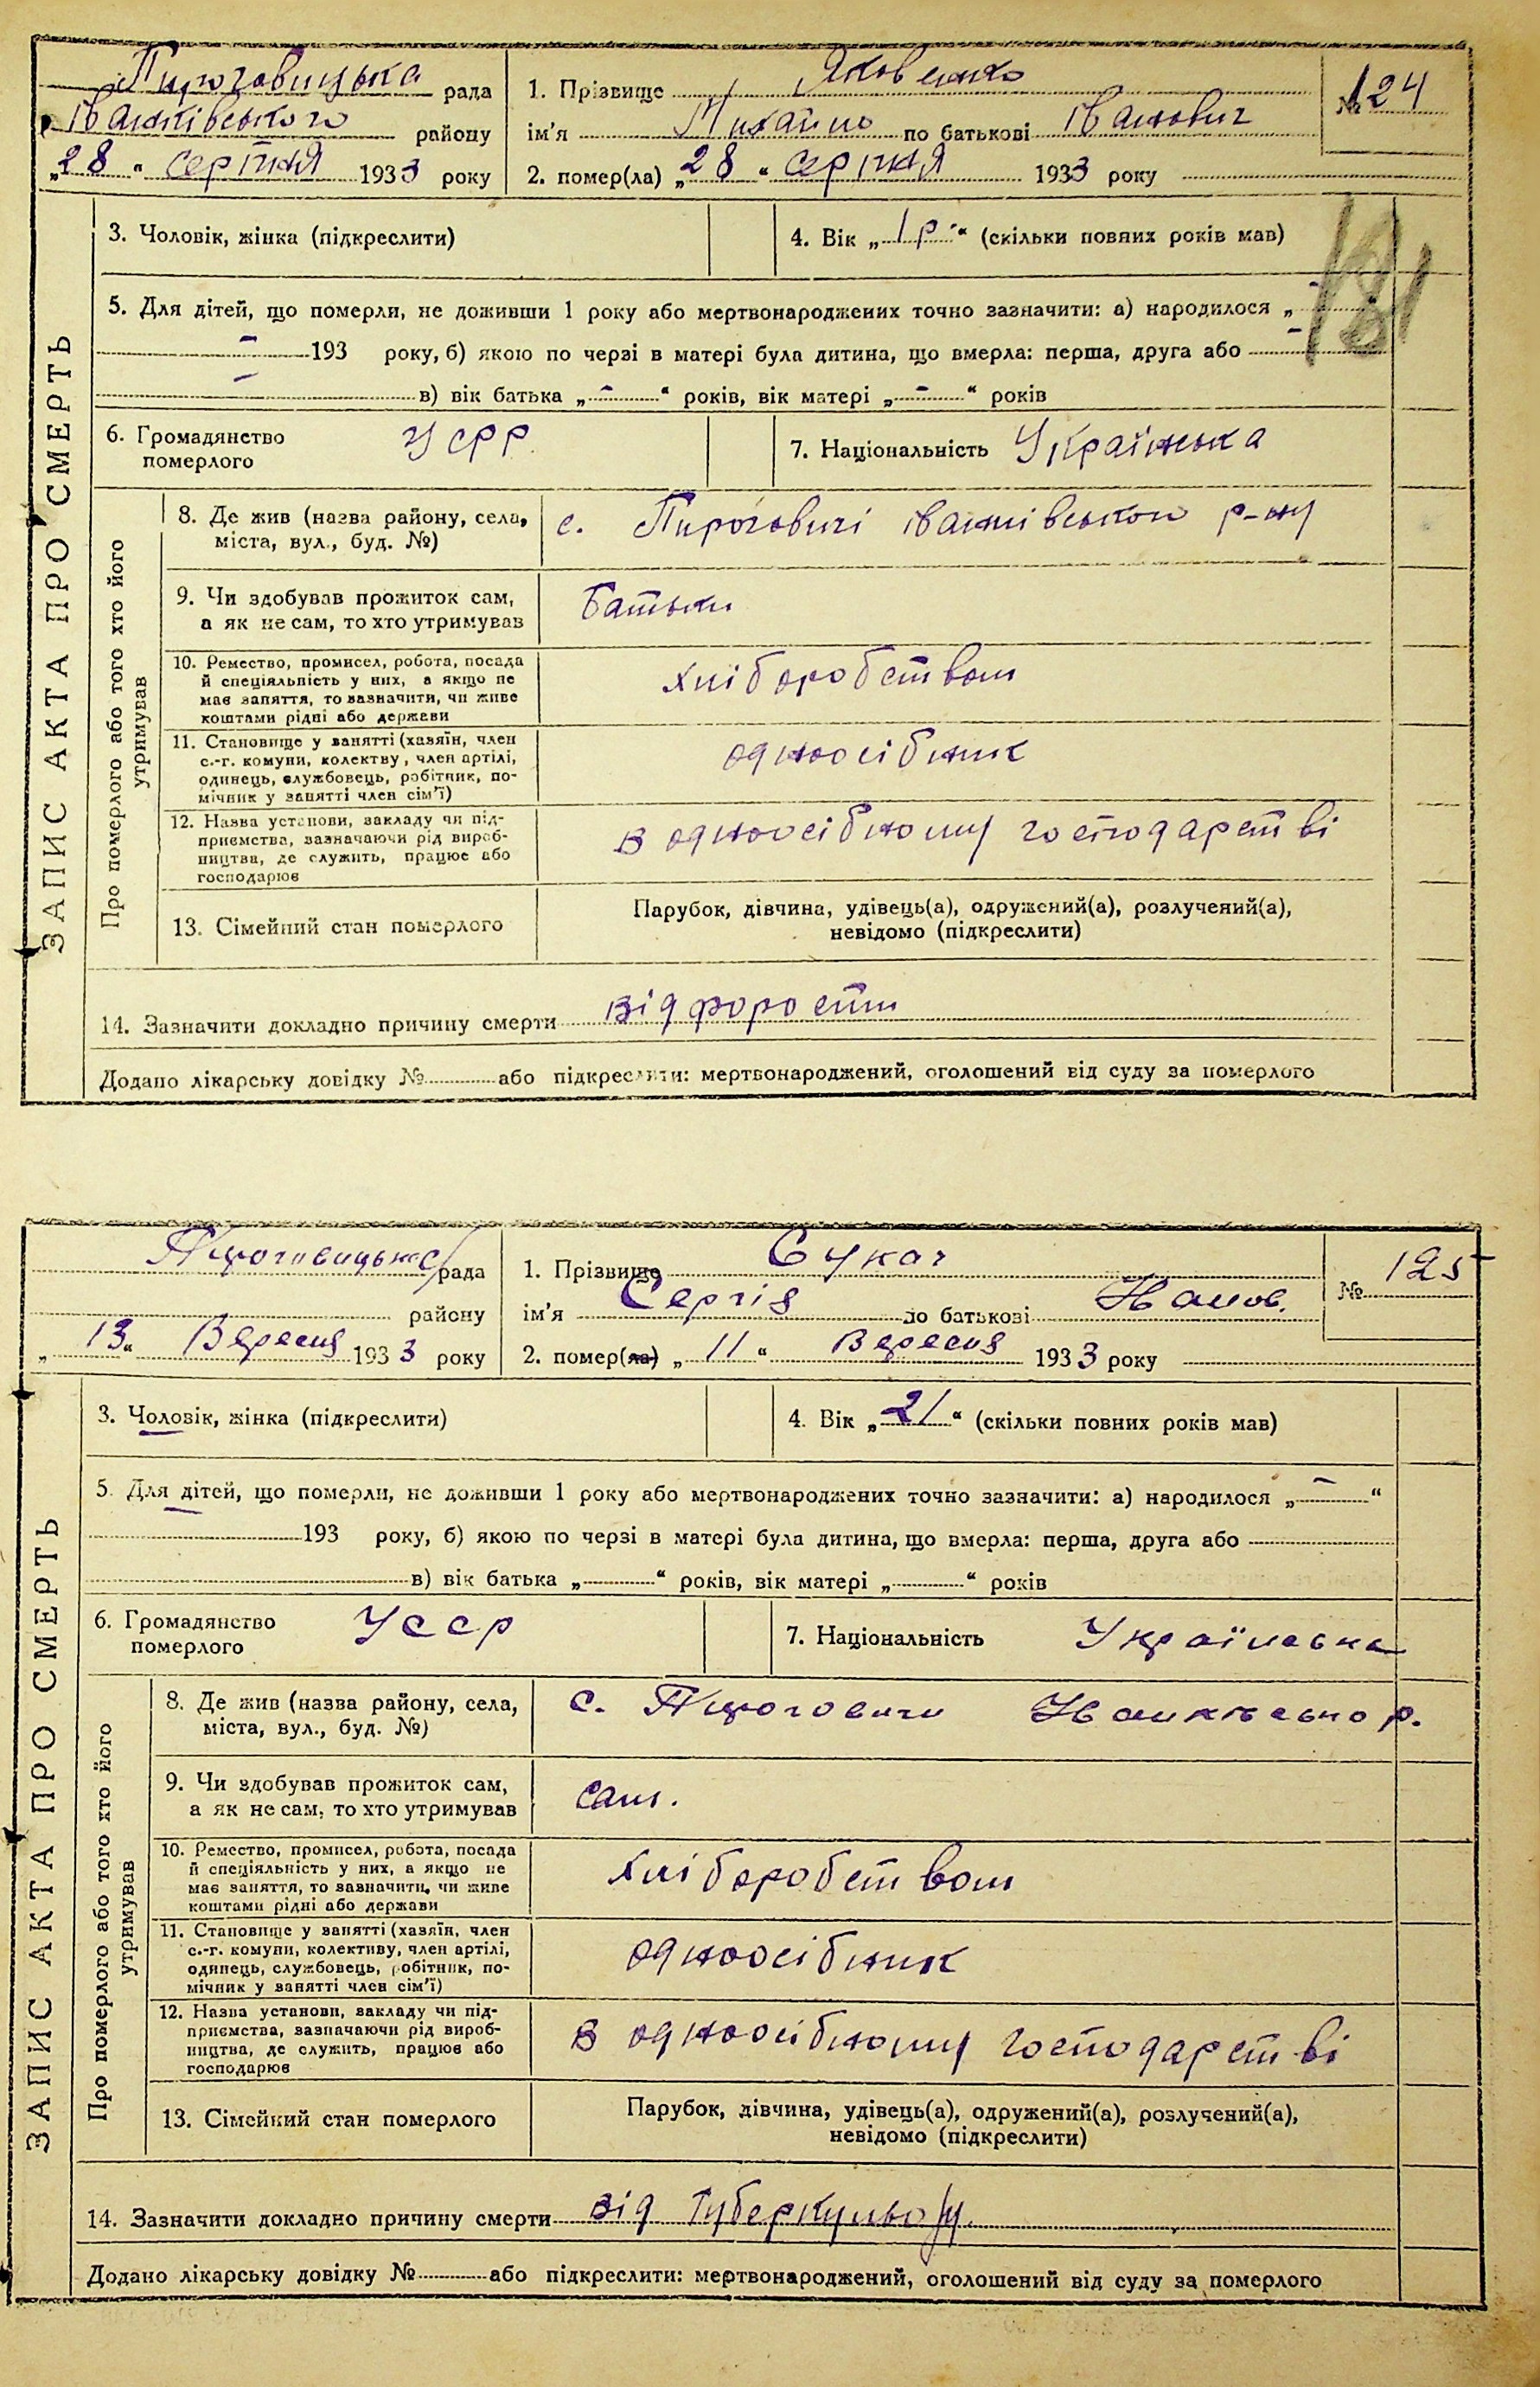 Пироговицька рада
Іванківського району
„28“ серпня 1933 року
1. Прізвище Яковенко
ім'я Михайло по батькові Іванович
2. помер(ла) „28“ серпня 1933 року
№ 124
181
3. Чоловік, жінка (підкреслити)
4. Вік „1 р.“ (скільки повних років мав)
5. Для дітей, що померли, не доживши 1 року або мертвонароджених точно зазначити: а) народилося „ – “
– 193 року, б) якою по черзі в матері була дитина, що вмерла: перша, друга або –
– в) вік батька „ – “ років, вік матері „ – “ років
6. Громадянство
померлого
УСРР
7. Національність Українська
ЗАПИС АКТА ПРО СМЕРТЬ
Про померлого або того хто його
утримував
8. Де жив (назва району, села,
міста, вул., буд. №)
с. Пироговичі Іванківського р-ну
9. Чи здобував прожиток сам,
а як не сам, то хто утримував
Батьки
10. Ремество, промисел, робота, посада
й спеціяльність у них, а якщо не
має заняття, то зазначити, чи живе
коштами рідні або держави
хліборобством
11. Становище у занятті (хазяїн, член
с.-г. комуни, колектву, член артілі,
одинець, службовець, робітник, по-
мічник у занятті член сім'ї)
одноосібник
12. Назва установи, закладу чи під-
приємства, зазначаючи рід вироб-
ництва, де служить, працює або
господарює
в одноосібному господарстві
13. Сімейний стан померлого
Парубок, дівчина, удівець(а), одружений(а), розлучений(а),
невідомо (підкреслити)
14. Зазначити докладно причину смерти від
Додано лікарську довідку № або підкреслити: мертвонароджений, оголошений від суду за померлого
Пироговицька с/рада
району
„13“ Вересня 1933 року
1. Прізвище Сукач
ім'я Сергій по батькові Иванов.
2. помер(ла) „11“ Вересня 1933 року
№ 125
3. Чоловік, жінка (підкреслити)
4. Вік „21“ (скільки повних років мав)
5. Для дітей, що померли, не доживши 1 року або мертвонароджених точно зазначити: а) народилося „ – “
193 року, б) якою по черзі в матері була дитина, що вмерла: перша, друга або
в) вік батька „ “ років, вік матері „ “ років
6. Громадянство
померлого
УССР
7. Національність Українська
ЗАПИС АКТА ПРО СМЕРТЬ
Про померлого або того хто його
утримував
8. Де жив (назва району, села,
міста, вул., буд. №)
с. Пироговичи р.
9. Чи здобував прожиток сам,
а як не сам, то хто утримував
сам.
10. Ремество, промисел, робота, посада
й спеціяльність у них, а якщо не
має заняття, то зазначити, чи живе
коштами рідні або держави
хліборобством
11. Становище у занятті (хазяїн, член
с.-г. комуни, колективу, член артілі,
одинець, службовець, робітник, по-
мічник у занятті член сім'ї)
одноосібник
12. Назва установи, закладу чи під-
приємства, зазначаючи рід вироб-
ництва, де служить, працює або
господарює
в одноосібному господарстві
13. Сімейний стан померлого
Парубок, дівчина, удівець(а), одружений(а), розлучений(а),
невідомо (підкреслити)
14. Зазначити докладно причину смерти від Туберкульозу.
Додано лікарську довідку № або підкреслити: мертвонароджений, оголошений від суду за померлого